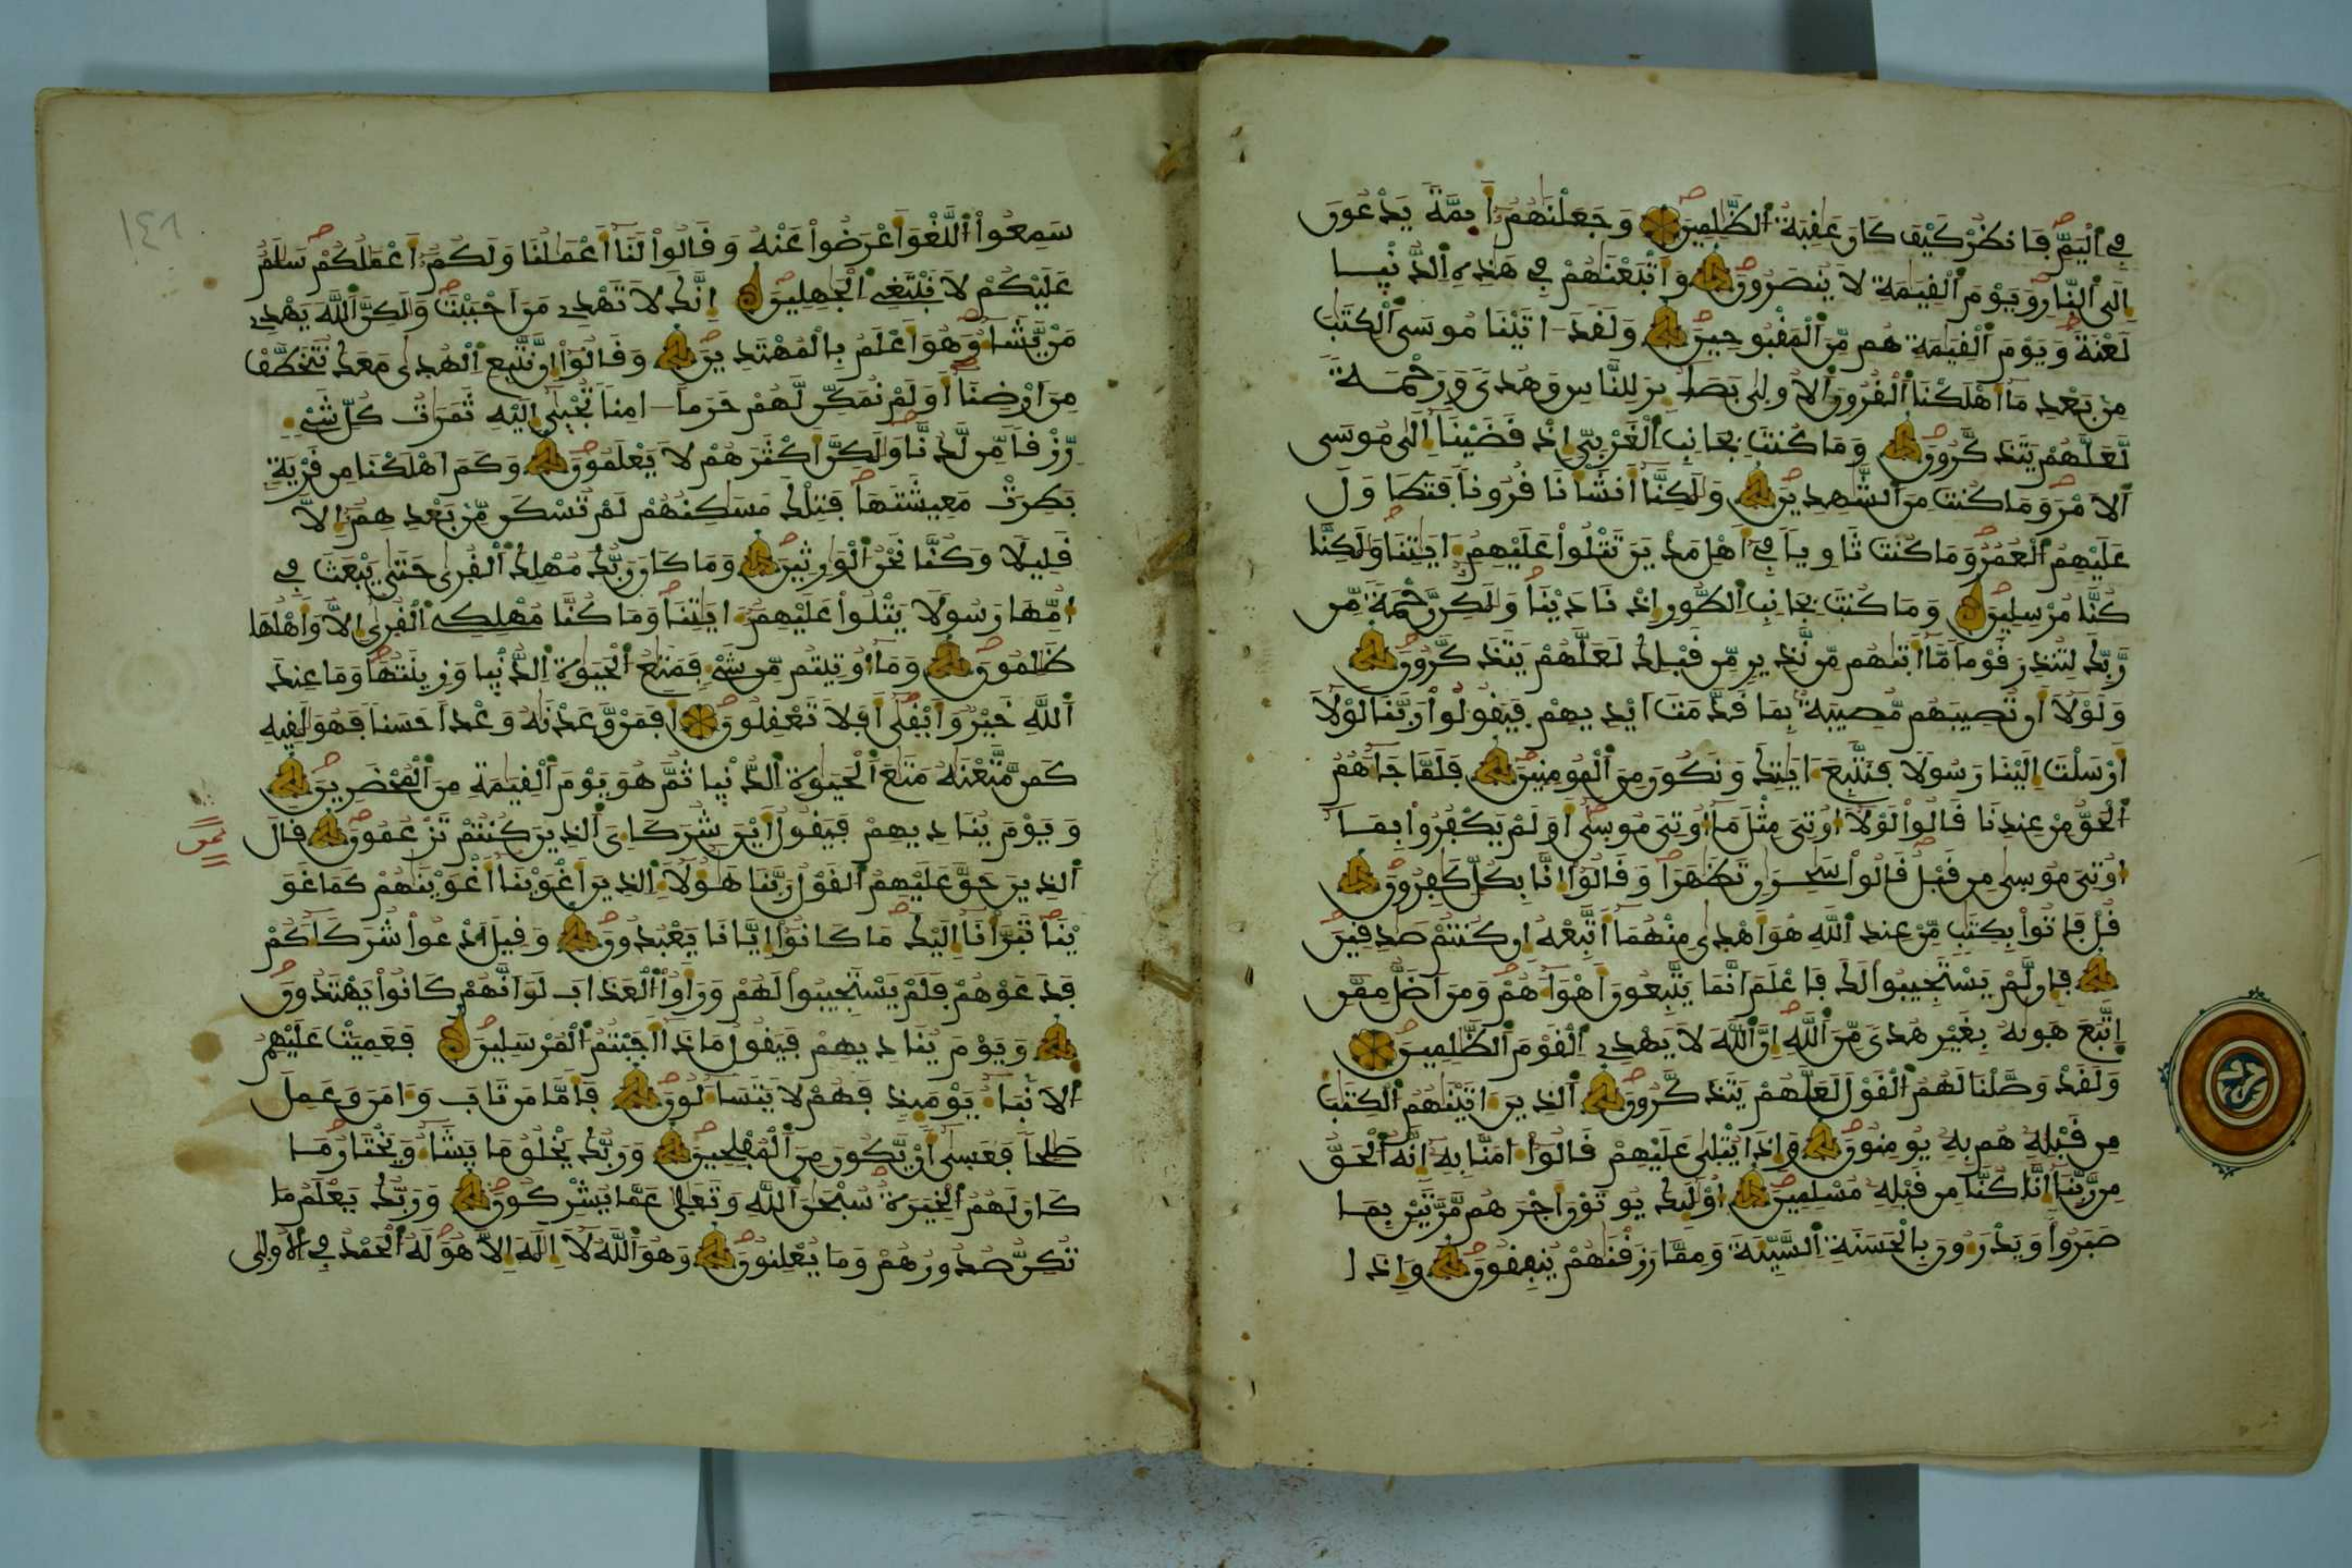 في اليم فانظر كيف كان عقبة الظلمين وجعلنهم أيمة يدعون
إلى النار ويوم القيمة لا ينصرون وأتبعنهم في هذه الدنيا
لعنة ويوم القيمة هم من المقبوحين ولقد اتينا موسى الكتب
من بعد ما أهلكنا القرون الاولى بصاير للناس وهدى ورحمة
لعلهم يتذكرون وما كنت بجانب الغربي إذ قضينا إلى موسى
الامر وما كنت من الشهدين ولكنا أنشأنا قرونا فتطاول
عليهم العمر وما كنت ثاويا في أهل مدين تتلوا عليهم ايتنا ولكنا
كنا مرسلين وما كنت بجانب الطور إذ نادينا ولكن رحمة من
ربك لتنذر قوما ما أتيهم من نذير من قبلك لعلهم يتذكرون
ولولا أن تصيبهم مصيبة بما قدمت أيديهم فيقولوا ربنا لولا
أرسلت إلينا رسولا فنتبع ايتك ونكون من المومنين فلما جاهم
الحق من عندنا قالوا لولا أوتي مثل ما أوتي موسى أولم يكفروا بما
أوتي موسى من قبل قالوا سحرن تظهرا وقالوا إنا بكل كفرون
قل فاتوا بكتب من عند الله هو أهدى منهما أتبعه إن كنتم صدقين
فإن لم يستجيبوا لك فاعلم أنما يتبعون أهواهم ومن أضل ممن
اتبع هويه بغير هدى من الله إن الله لا يهدي القوم الظلمين
ولقد وصلنا لهم القول لعلهم يتذكرون الذين اتينهم الكتب
من قبله هم به يومنون وإذا يتلى عليهم قالوا امنا به إنه الحق
من ربنا إنا كنا من قبله مسلمين أوليك يوتون أجرهم مرتين بما
صبروا ويدرءون بالحسنة السيئة ومما رزقنهم ينفقون وإذا
حزب
سمعوا اللغو أعرضوا عنه وقالوا لنا أعملنا ولكم أعملكم سلم
عليكم لا نبتغي الجهلين إنك لا تهدي من احببت ولكن الله يهدي
من يشا وهو أعلم بالمهتدين وقالوا إن نتبع الهدى معك نتخطف
من ارضنا أولم نمكن لهم حرما امنا تجبى إليه ثمرت كل شيء
رزقا من لدنا ولكن أكثرهم لا يعلمون وكم اهلكنا من قرية
بطرت معيشتها فتلك مسكنهم لم تسكن من بعدهم إلا
قليلا وكنا نحن الورثين وما كان ربك مهلك القرى حتى يبعث في
أمها رسولا يتلوا عليهم ايتنا وما كنا مهلكي القرى إلا وأهلها
ظلمون وما أوتيتم من شيء فمتع الحيوة الدنيا وزينتها وما عند
الله خير وأبقى أفلا تعقلون أفمن وعدنه وعدا حسنا فهو لقيه
كمن متعنه متع الحيوة الدنيا ثم هو يوم القيمة من المحضرين
ويوم يناديهم فيقول أين شركاي الذين كنتم تزعمون قال
ثمن
الذين حق عليهم القول ربنا هولا الذين أغوينا أغوينهم كما غو
ينا تبرأنا إليك ما كانوا إيانا يعبدون وقيل ادعوا شركاكم
فدعوهم فلم يستجيبوا لهم ورأوا العذاب لو انهم كانوا يهتدون
ويوم يناديهم فيقول ماذا أجبتم المرسلين فعميت عليهم
الانبا يوميذ فهم لا يتسالون فأما من تاب وامن وعمل
صلحا فعسى أن يكون من المفلحين وربك يخلق ما يشا ويختار ما
كان لهم الخيرة سبحن الله وتعلى عما يشركون وربك يعلم ما
تكن صدورهم وما يعلنون وهو الله لا إله إلا هو له الحمد في الأولى